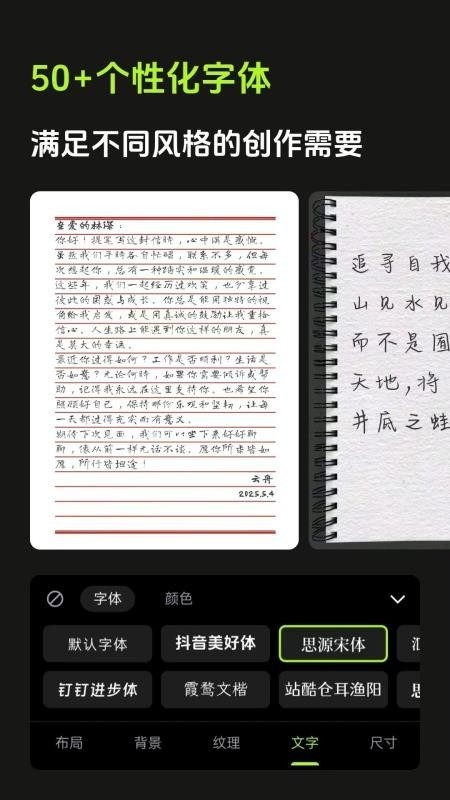 50+个性化字体
满足不同风格的创作需要
亲爱的林深：
你好！提笔写这封信时，心中满是感慨。
虽然我们平时各自忙碌，联系不多，但每
次想起你，总有一种踏实和温暖的感觉。
这些年，我们一起经历过欢笑，也分享过
彼此的困惑与成长。你总是能用独特的视
角给我启发，或是用真诚的鼓励让我重拾
信心。人生路上能遇到你这样的朋友，真
是莫大的幸运。
最近你过得如何？工作是否顺利？生活是
否如意？无论何时，如果你需要倾诉或帮
助，记得我永远在这里支持你。也希望你
照顾好自己，保持那份乐观和坚韧，让每
一天都过得充实而有意义。
期待下次见面，我们可以坐下来好好聊
聊，像从前一样无话不谈。愿你所求皆如
愿，所行皆坦途！
云舟
2025.5.4
追寻自我
山见水见
而不是囿
天地，将
井底之蛙
字体
颜色
默认字体
抖音美好体
思源宋体
钉钉进步体
霞鹜文楷
站酷仓耳渔阳
布局
背景
纹理
文字
尺寸